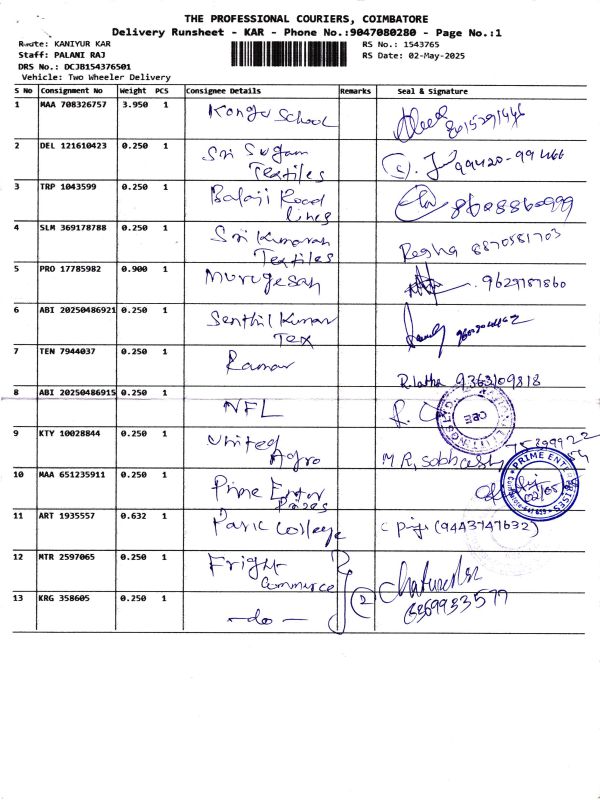 THE PROFESSIONAL COURIERS, COIMBATORE
Delivery Runsheet - KAR - Phone No.:9047080280 - Page No.:1
Route: KANIYUR KAR
RS No.: 1543765
Staff: PALANI RAJ
RS Date: 02-May-2025
DRS No.: DCJB154376501
Vehicle: Two Wheeler Delivery
S No Consignment No Weight PCS Consignee Details Remarks Seal & Signature
1 MAA 708326757 3.950 1 Kongu School
2 DEL 121610423 0.250 1 Sri Sugam Textiles 99420-99466
3 TRP 1043599 0.250 1 Balaji Road lines 8608860999
4 SLM 369178788 0.250 1 Sri Kumaran Textiles Regha 8870581703
5 PRO 17785982 0.900 1 Murugesan 9629787860
6 ABI 20250486921 0.250 1 Senthil Kumar Tex
7 TEN 7944037 0.250 1 Raman R.latha 9363109818
8 ABI 20250486915 0.250 1 NFL CBE
9 KTY 10028844 0.250 1 United Agro M R, Sobhash
10 MAA 651235911 0.250 1 Prime Enter Prises PRIME ENTERPRISES 02/05
11 ART 1935557 0.632 1 Park College (9443747632)
12 MTR 2597065 0.250 1 Fright Commerce
13 KRG 358605 0.250 1 -do- 2